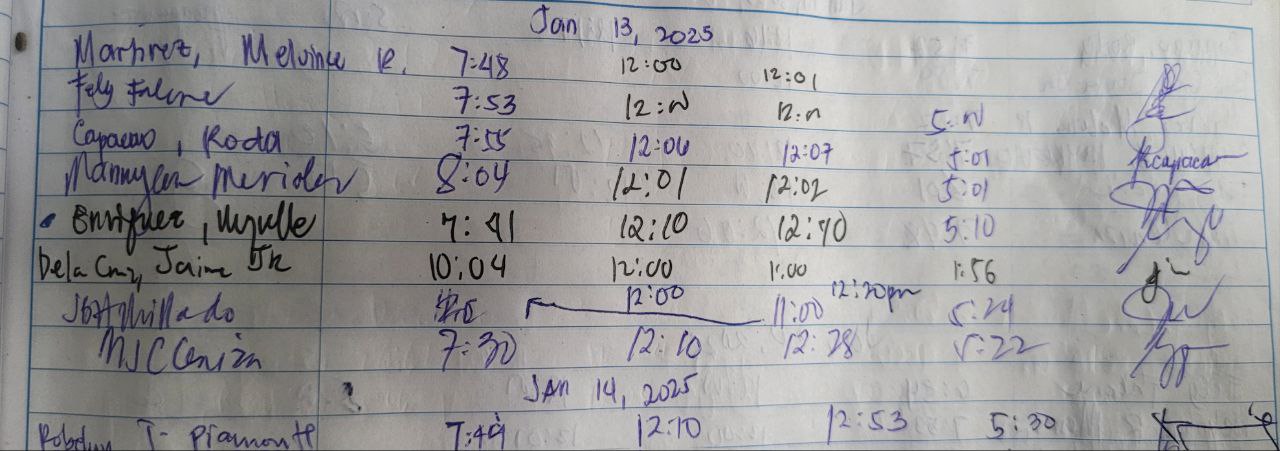 Jan 13, 2025
Martinez, Melvince R. 7:48 12:00 12:01
Fely 7:53 12:N 12:n 5:N
Capacao, Roda 7:55 12:06 12:07 5:01 Rcapacao
8:04 12:01 12:02 5:01
Enriquez, 7:41 12:10 12:10 5:10
Dela Cruz, Jaime Jr 10:04 12:00 1:00 1:56
12:00 11:00 12:20pm 5:24
7:30 12:10 12:28 5:22
JAN 14, 2025
T. Piamonte 7:49 12:10 12:53 5:30